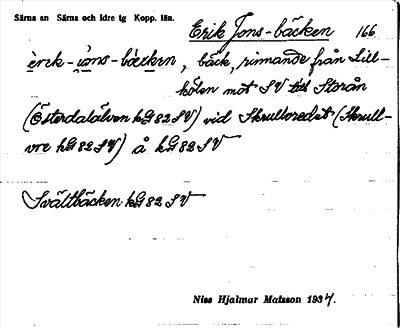 Särna sn Särna och Idre tg Kopp. län.
Erik Jons-bäcken 166
, bäck, rinnande från Lill-
kölen mot SV till Storån
(Österdalälven hG 82 SV) vid Skrulloredet (Skrull-
hG 82 SV) å hG 82 SV
Svältbäcken hG 82 SV
Niss Hjalmar Matsson 1937.